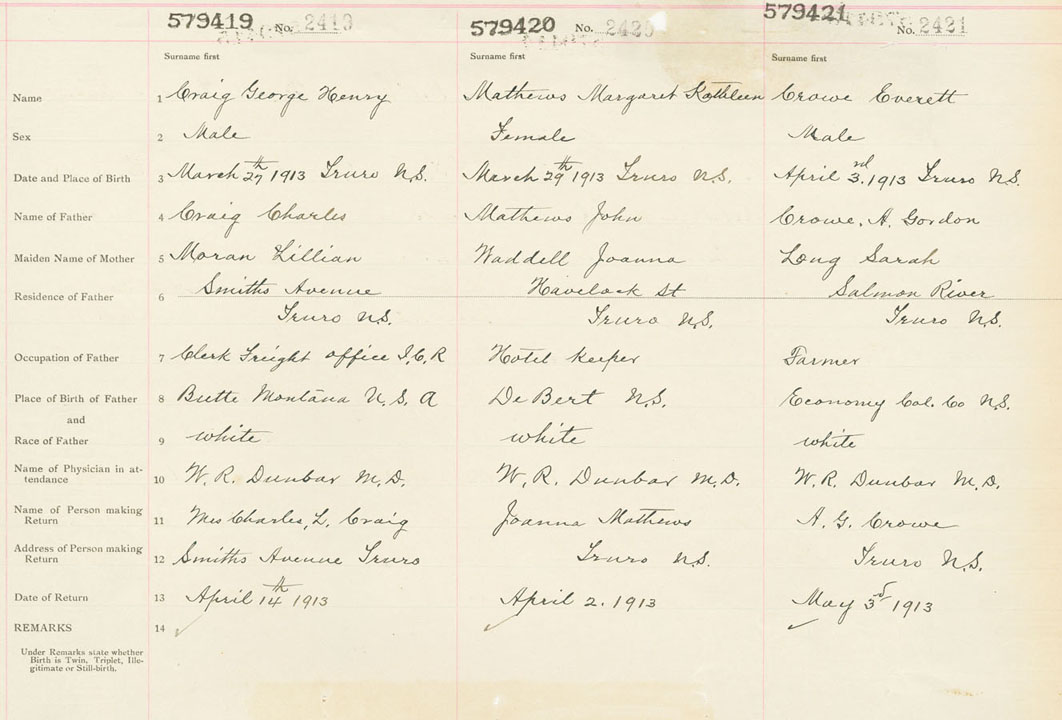 579419 No. 2419 579420 No. 2420 579421 No. 2421
Surname first Surname first Surname first
Name 1 Craig George Henry Mathews Margaret Kathleen Crowe Everett
Sex 2 Male Female Male
Date and Place of Birth 3 March 27th 1913 Truro N.S. March 29th 1913 Truro N.S. April 3rd. 1913 Truro N.S.
Name of Father 4 Craig Charles Mathews John Crowe, A. Gordon
Maiden Name of Mother 5 Moran Lillian Waddell Joanna Long Sarah
Residence of Father 6 Smiths Avenue Havelock St Salmon River
Truro N.S. Truro N.S. Truro N.S.
Occupation of Father 7 Clerk Freight office I.C.R Hotel Keeper Farmer
Place of Birth of Father 8 Butte Montana U.S.A DeBert N.S. Economy Col. Co N.S.
and
Race of Father 9 white white white
Name of Physician in at-
tendance 10 W. R. Dunbar M.D. W. R. Dunbar M.D. W. R. Dunbar M.D.
Name of Person making
Return 11 Mrs Charles, L. Craig Joanna Mathews A. G. Crowe
Address of Person making
Return 12 Smiths Avenue Truro Truro N.S. Truro N.S.
Date of Return 13 April 14th 1913 April 2. 1913 May 3rd 1913
REMARKS 14
Under Remarks state whether
Birth is Twin, Triplet, Ille-
gitimate or Still-birth.